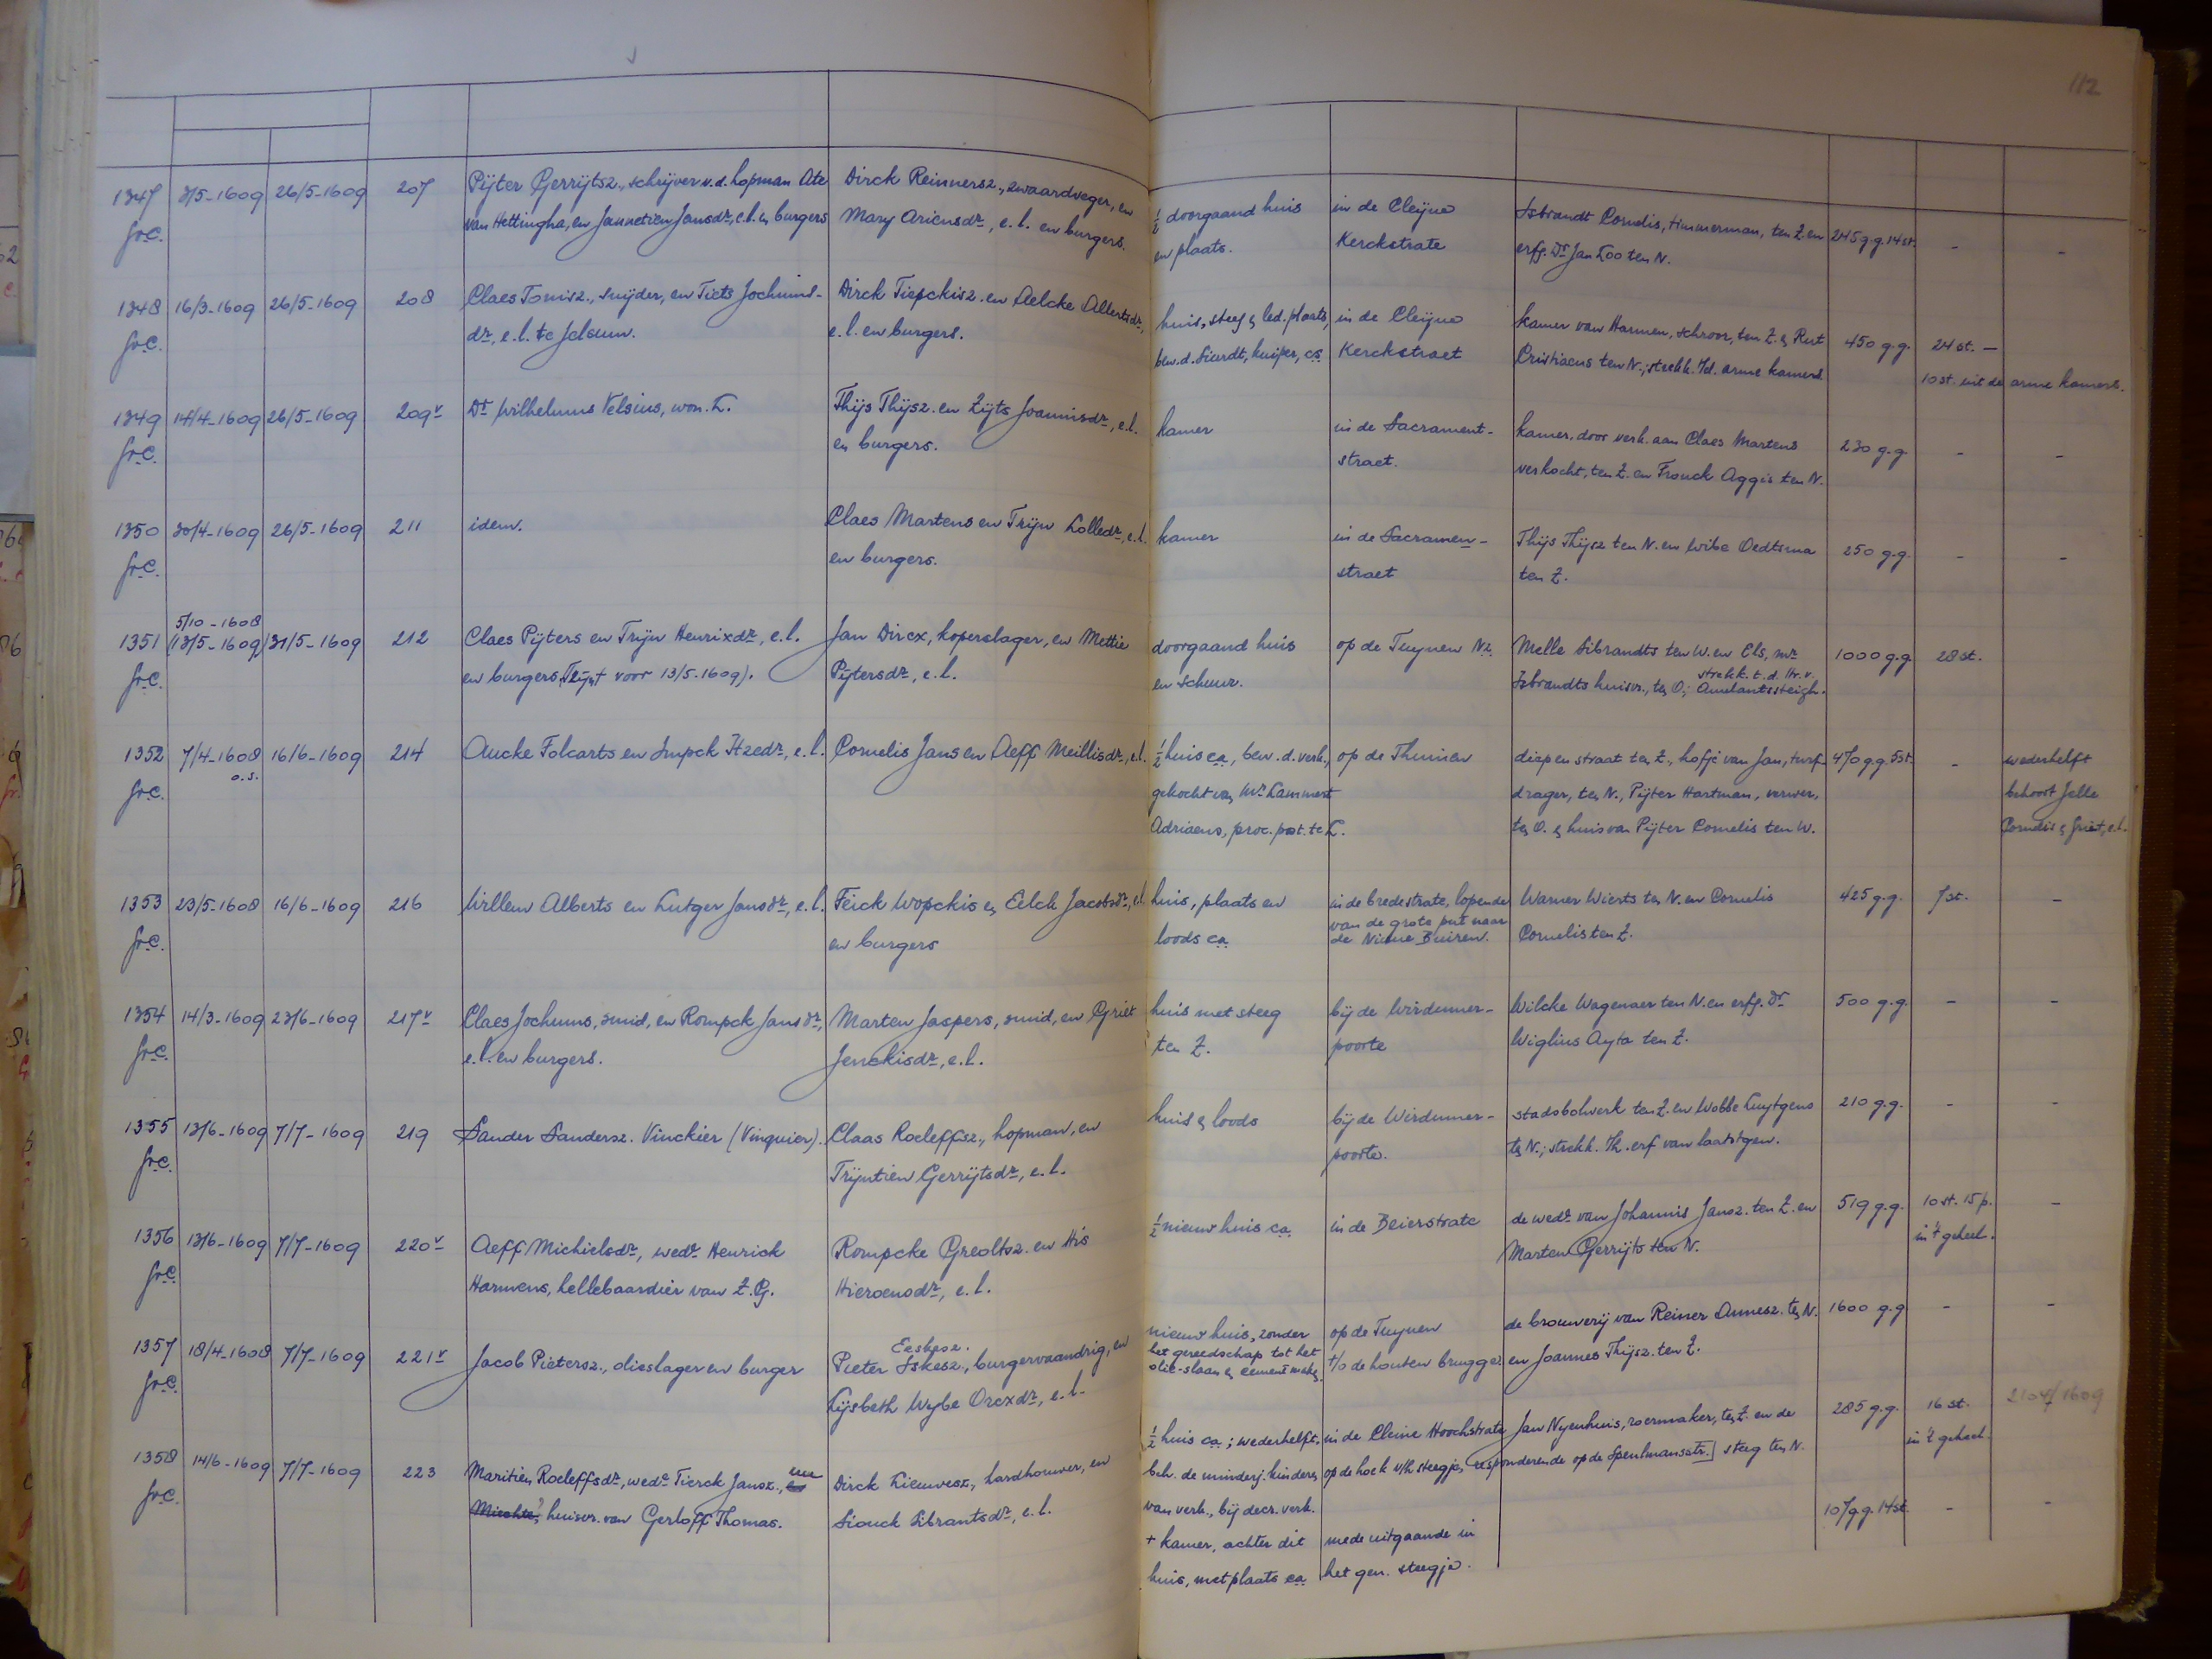 112
1347 3/5-1609 26/5-1609 207 Pijter Gerrijtsz., schrijver v.d. hopman Ate Dirck Reinnersz., zwaardveger, en ½ doorgaand huis in de Cleijne Isbrandt Cornelis, timmerman, ten Z. en 245 g.g. 14 st. - -
gr.C. van Hettingha, en Jannetien Jansdr, e.l. en burgers Mary Ariensdr, e.l. en burgers. en plaats. Kerckstrate erfg. Dr Jan Loo ten N.
1348 16/3-1609 26/5-1609 208 Claes Tonisz., snijder, en Tiets Jochims- Dirck Tiepckisz. en Aelcke Albertsdr, huis, steeg & led. plaats, in de Cleijne kamer van Harmen, schroor, ten Z. & Rut 450 g.g. 24 st. —
gr.C. dr, e.l. te Jelsum. e.l. en burgers. bew. d. Sierdt, kuiper, ca Kerckstraet Cristiaens ten N.; strekk. t/d. arme kamers 10 st. uit de arme kamers.
1349 14/4-1609 26/5-1609 209v Dr Wilhelmus Velsius, won. L. Thijs Thijsz. en Zijts Joannisdr, e.l. kamer in de Sacrament- kamer, door verk. aan Claes Martens 230 g.g. - -
gr.C. en burgers. straet. verkocht, ten Z. en Frouck Aggis ten N.
1350 30/4-1609 26/5-1609 211 idem. Claes Martens en Trijn Lolledr, e.l. kamer in de Sacramen- Thijs Thijsz ten N. en Wibe Oedtsma 250 g.g. - -
gr.C. en burgers. straet ten Z.
5/10-1608
1351 (13/5-1609) 31/5-1609 212 Claes Pijters en Trijn Henrixdr, e.l. Jan Dircx, koperslager, en Mettie doorgaand huis op de Tuynen Nz. Melle Sibrandts ten W. en Els, mr 1000 g.g. 28 st.
gr.C. en burgers (Trijnt voor 13/5-1609). Pijtersdr, e.l. en schuur. Isbrandts huisvr., ten O.; strekk. t.d. str. v. Amelantssteigh.
1352 7/4-1608 16/6-1609 214 Aucke Folcarts en Impck Itzedr, e.l. Cornelis Jans en Aeff Meillisdr, e.l. ½ huis ca, bew. d. verk., op de Thuinen diep en straat ten Z., hofje van Jan, turf- 470 g.g. 5 st. - wederhelft
gr.C. o.s. gekocht van Mr Lammert drager, ten N., Pijter Hartman, verwer, behoort Jelle
Adriaens, proc. post. te L. ten O. & huis van Pijter Cornelis ten W. Cornelis & Griet, e.l.
1353 23/5-1608 16/6-1609 216 Willem Alberts en Lutger Jansdr, e.l. Feick Wopckis en Eelck Jacobsdr, e.l. huis, plaats en in de bredestrate, lopende Warner Wierts ten N. en Cornelis 425 g.g. 7 st. -
gr.C. en burgers loods ca van de grote put naar de Nieue Buiren. Cornelis ten Z.
1354 14/3-1609 23/6-1609 217v Claes Jochums, smid, en Rompck Jansdr, Marten Jaspers, smid, en Griet huis met steeg bij de Wirdumer- Wilcke Wagenaer ten N. en erfg. Dr 500 g.g. - -
gr.C. e.l. en burgers. Jenckisdr, e.l. ten Z. poorte Wiglius Ayta ten Z.
1355 13/6-1609 7/7-1609 219 Sander Sandersz. Vinckier (Vinquier). Claas Roeleffsz., hopman, en huis & loods bij de Wirdumer- stadsbolwerk ten Z. en Wobbe Luytgens 210 g.g. - -
gr.C. Trijntien Gerrijtsdr, e.l. poorte. ten N.; strekk. t/h. erf van laatstgen.
1356 13/6-1609 7/7-1609 220v Aeff Michielsdr, wedr Henrick Rompcke Greoltsz. en His ½ nieuw huis ca in de Beierstrate de wedr van Johannis Jansz. ten Z. en 519 g.g. 10 st. 15 p. -
gr.C. Harmens, hellebaardier van Z.G. Hieroensdr, e.l. Marten Gerrijts ten N. in 't geheel.
1357 18/4-1608 7/7-1609 221v Jacob Pietersz., olieslager en burger Pieter Eeskesz. Iskesz., burgervaandrig, en nieuw huis, zonder op de Tuynen de brouwerij van Reiner Annesz. ten N. 1600 g.g - -
gr.C. Lijsbeth Wybe Orcxdr, e.l. het gereedschap tot het olie-slaan & cement maken. t/o de houten brugge en Joannes Thijsz. ten Z.
1358 14/6-1609 7/7-1609 223 Maritien Roeleffsdr, wedr Tierck Jansz., nu Dirck Lieuwesz., hardhouwer, en ½ huis ca; wederhelft in de Cleine Hoochstrate Jan Nyenhuis, roermaker, ten Z. en de 285 g.g. 16 st. 2104/1609
gr.C. huisvr. van Gerloff Thomas. Siouck Sibrantsdr, e.l. beh. de minderj. kinderen op de hoek v/h steegje, responderende op de Speulmansstr.] steeg ten N. in 't geheel.
van verk., bij decr. verk.
+ kamer, achter dit mede uitgaande in 107 g.g. 14 st. - -
huis, met plaats ca het gen. steegje.